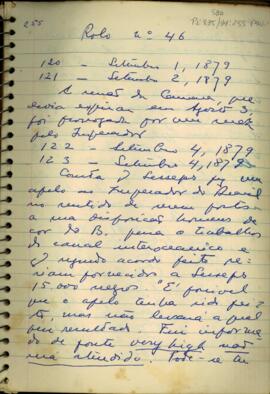 255
Rolo nº 46
120 — Setembro 1, 1879
121 — Setembro 2, 1879
A sessão da Camara, que
devia expirar em Agosto 3
foi prorogada por um mez
pelo Imperador
122 — Setembro 4, 1879
123 — Setembro 4, 1879
Consta q Lesseps fez um
apelo ao Imperador do Brasil
no sentido de serem postos
a sua disposição homens de
cor do B. para o trabalhos
do canal interoceanico e
q segundo acordo feito se-
riam fornecidos a Lesseps
15.000 negros. "É possivel
que o apelo tenha sido fei-
to, mas não levará a qual
quer resultado. Fui informa-
do de fonte very high não
será atendido. Pode-se ter